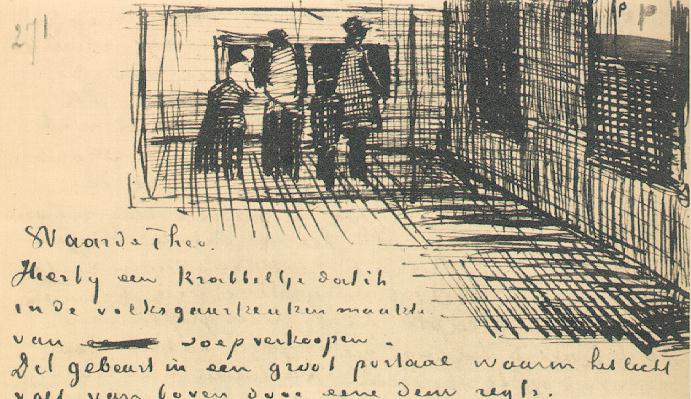 271
p p
Waarde Theo.
Hierby een Krabbeltje dat ik
in de volksgaarkeuken maakte
van soepverkoopen.
Dit gebeurt in een groot portaal waarin het licht
valt van boven door eene deur regts.